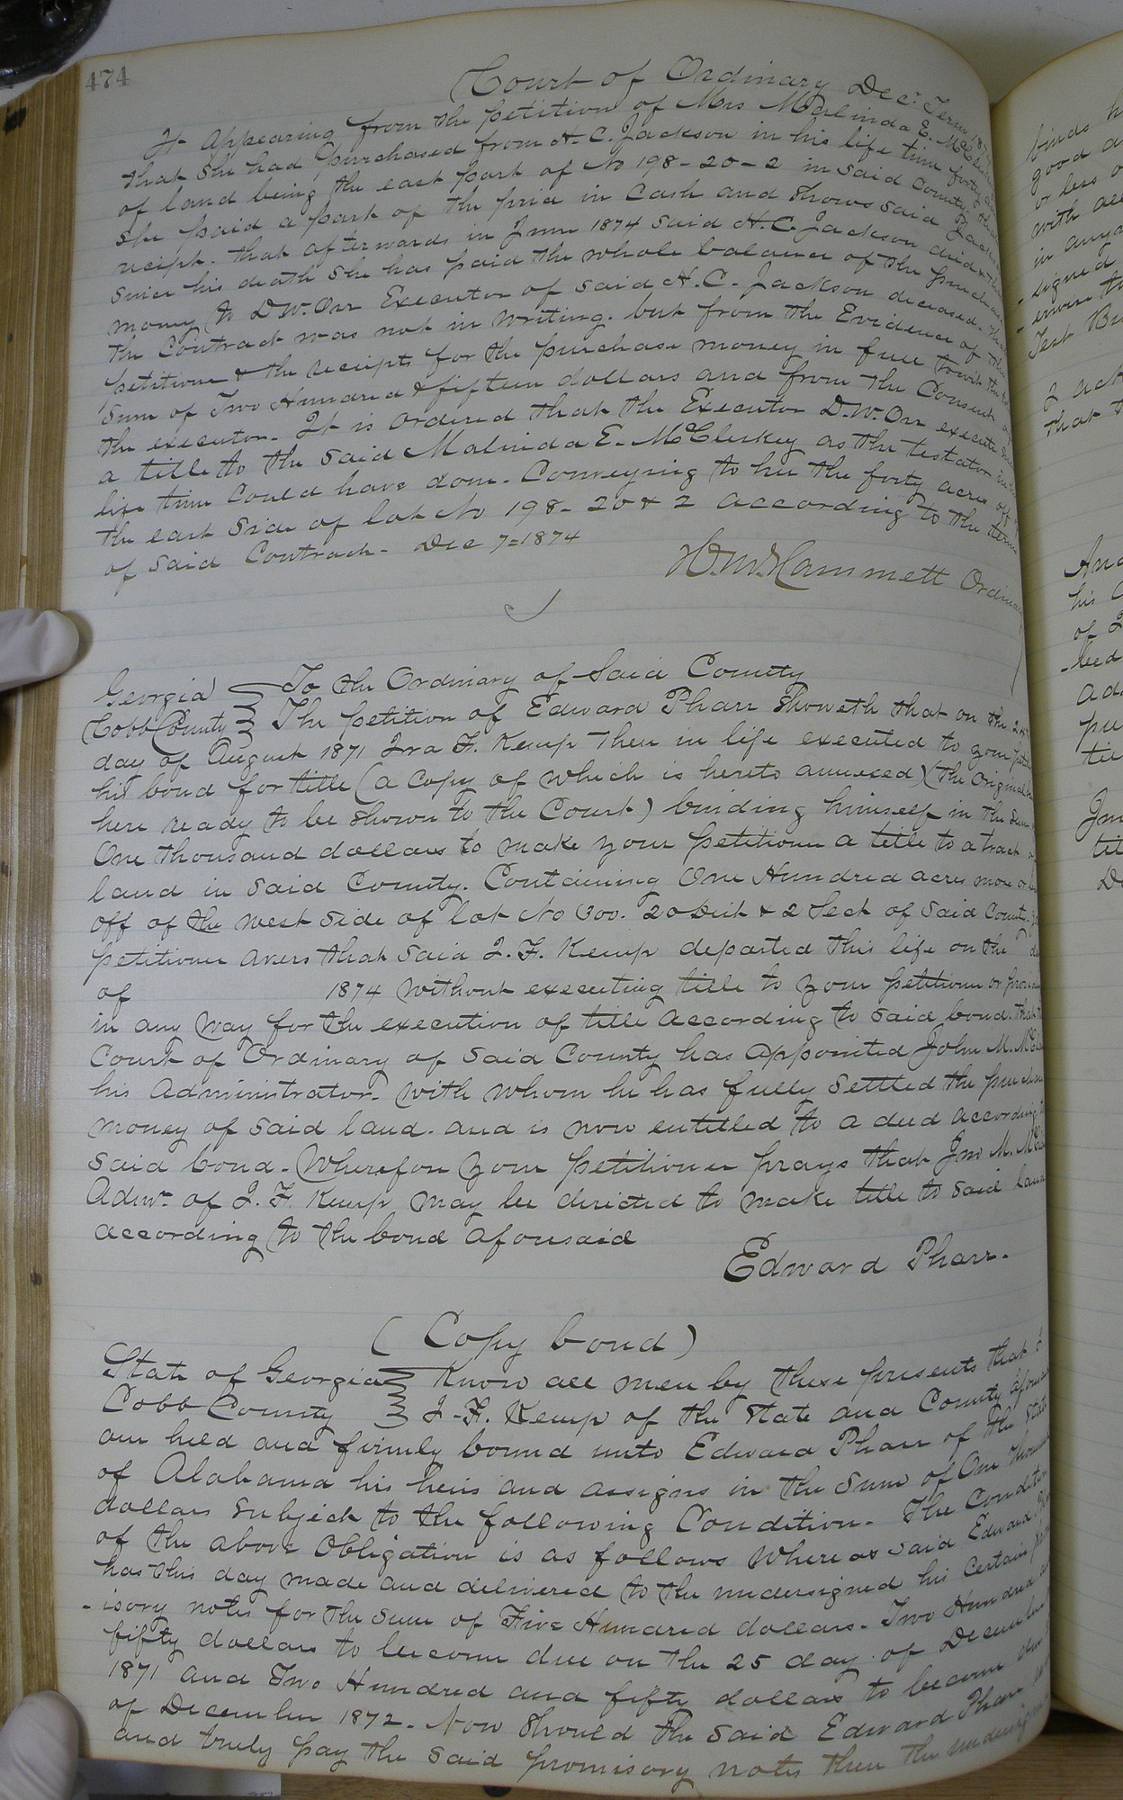 474
Court of Ordinary Dec. Term
It appearing from the petition of Mrs Malinda E.
that she had purchased from H. C. Jackson in his life time forty
of land being the east part of No 198-20-2 in said County
she paid a part of the price in cash and shows said
receipt. that afterwards in June 1874 said H. C. Jackson died
since his death she has paid the whole balance of the purchase
money to D W. Orr Executor of said H. C. Jackson deceased.
the contract was not in writing. but from the Evidence of
petitioner & the receipts for the purchase money in full towit
sum of Two Hundred & fifteen dollars and from the Consent
the executor. It is ordered that the Executor D. W. Orr execute
a title to the said Malinda E. McCleskey as the testator
life time could have done. Conveying to her the forty acres off
the east side of lot No 198- 20 & 2 according to the terms
of said Contract. Dec 7=1874
H. M. Hammett Ordinary
Georgia } To the Ordinary of Said County
Cobb County } The petition of Edward Pharr showeth that on the
day of August 1871 Ira F. Kemp then in life executed to your
his bond for title (a copy of which is hereto annexed) (the original
here ready to be shown to the Court) binding himself in the sum
One thousand dollars to make your petitioner a title to a tract
land in said County. Containing One Hundred acres more or
off of the west side of lot No 300. 20 Dist & 2 Sect of said County.
petitioner avers that said I. F. Kemp departed this life on the
of 1874 without executing title to your petitioner or
in any way for the execution of title according to said bond. that
Court of Ordinary of said County has appointed John M.
his Administrator. with whom he has fully settled the purchase
money of said land. and is now entitled to a deed according
said bond. Wherefore your petitioner prays that Jno M.
Admr. of I. F. Kemp may be directed to make title to said land
according to the bond aforesaid
Edward Pharr.
(Copy bond)
State of Georgia } Know all men by these presents that I
Cobb County } I. F. Kemp of the State and County
am held and firmly bound unto Edward Pharr of the State
of Alabama his heirs and assigns in the sum of One
dollars subject to the following Condition. The Condition
of the above Obligation is as follows Whereas said Edward
has this day made and delivered to the undersigned his certain
-isory notes for the sum of Five Hundred dollars. Two Hundred
fifty dollars to become due on the 25 day of December
1871 and Two Hundred and fifty dollars to become due
of December 1872. Now should the said Edward Pharr
and truly pay the said promisory notes then the